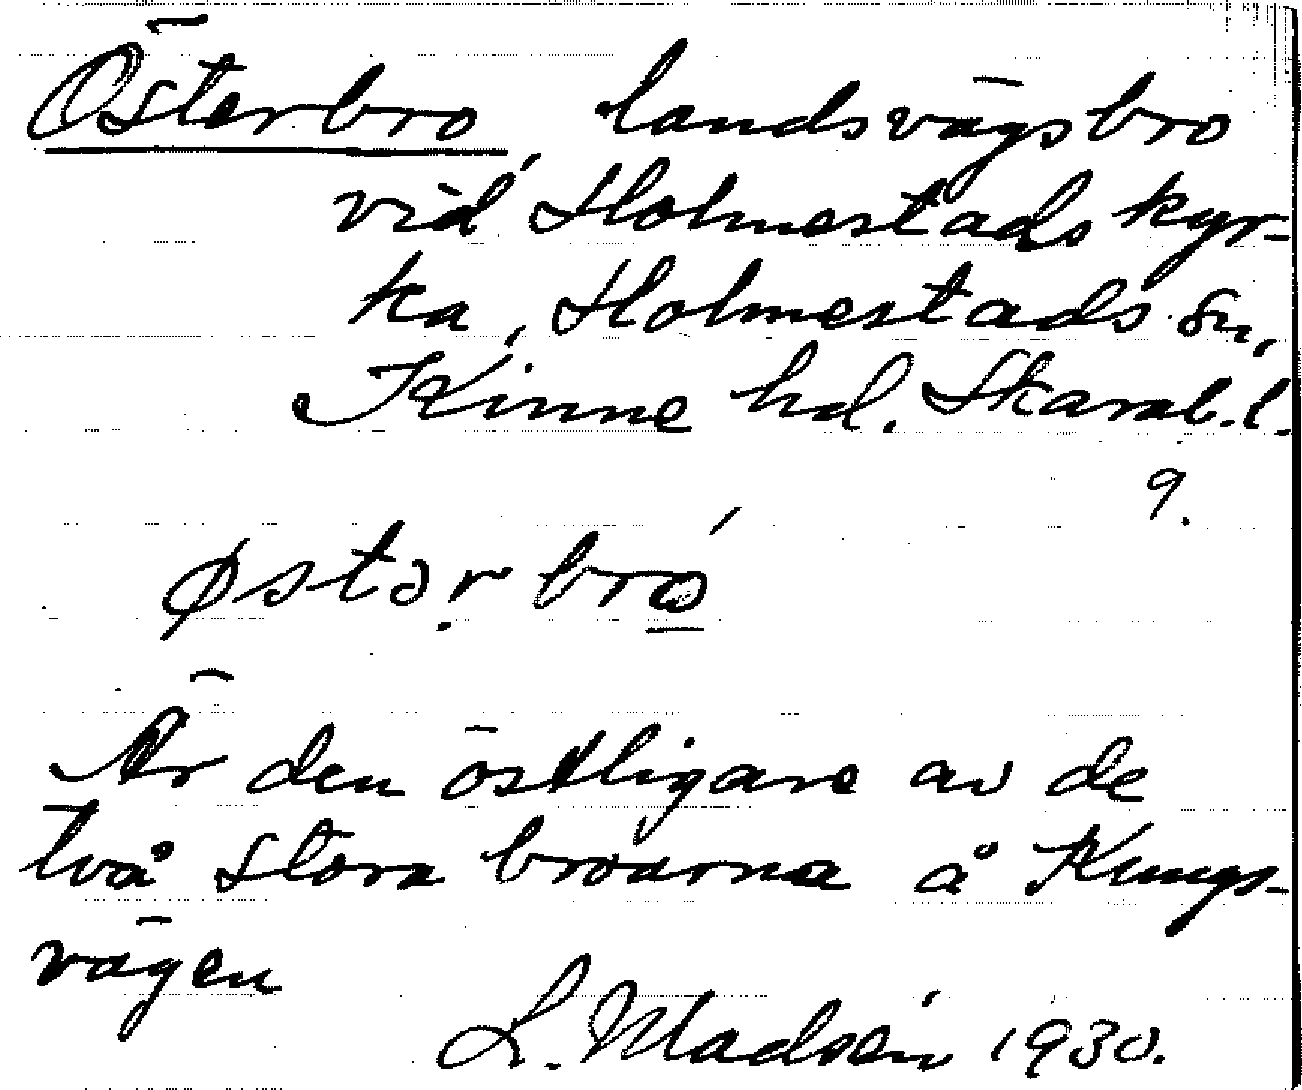 Österbro, landsvägsbro
vid Holmestads kyr-
ka, Holmestads sn,
Kinne hd. Skarab. l.
9.
østər bró
Är den östligare av de
två stora broarna å Kungs-
vägen
L. Madsén 1930.